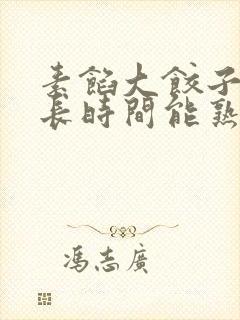 素餡大餃子
長時間能熟
馮志廣